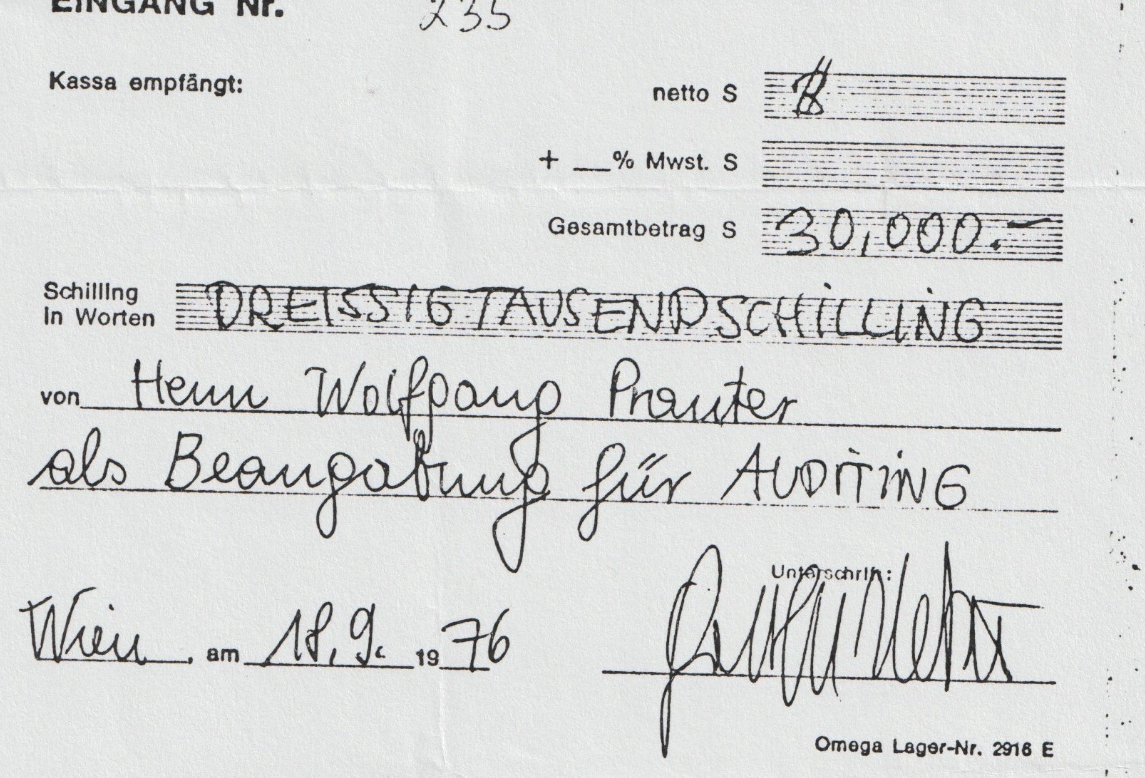 EINGANG Nr. 235
Kassa empfängt:
netto S
+ __% Mwst. S
Gesamtbetrag S 30,000.-
Schilling
in Worten DREISSIGTAUSENDSCHILLING
von Herrn Wolfgang Prauter
als Beangabung für AUDiTiNG
Unterschrift:
Wien, am 18.9. 1976
Omega Lager-Nr. 2916 E